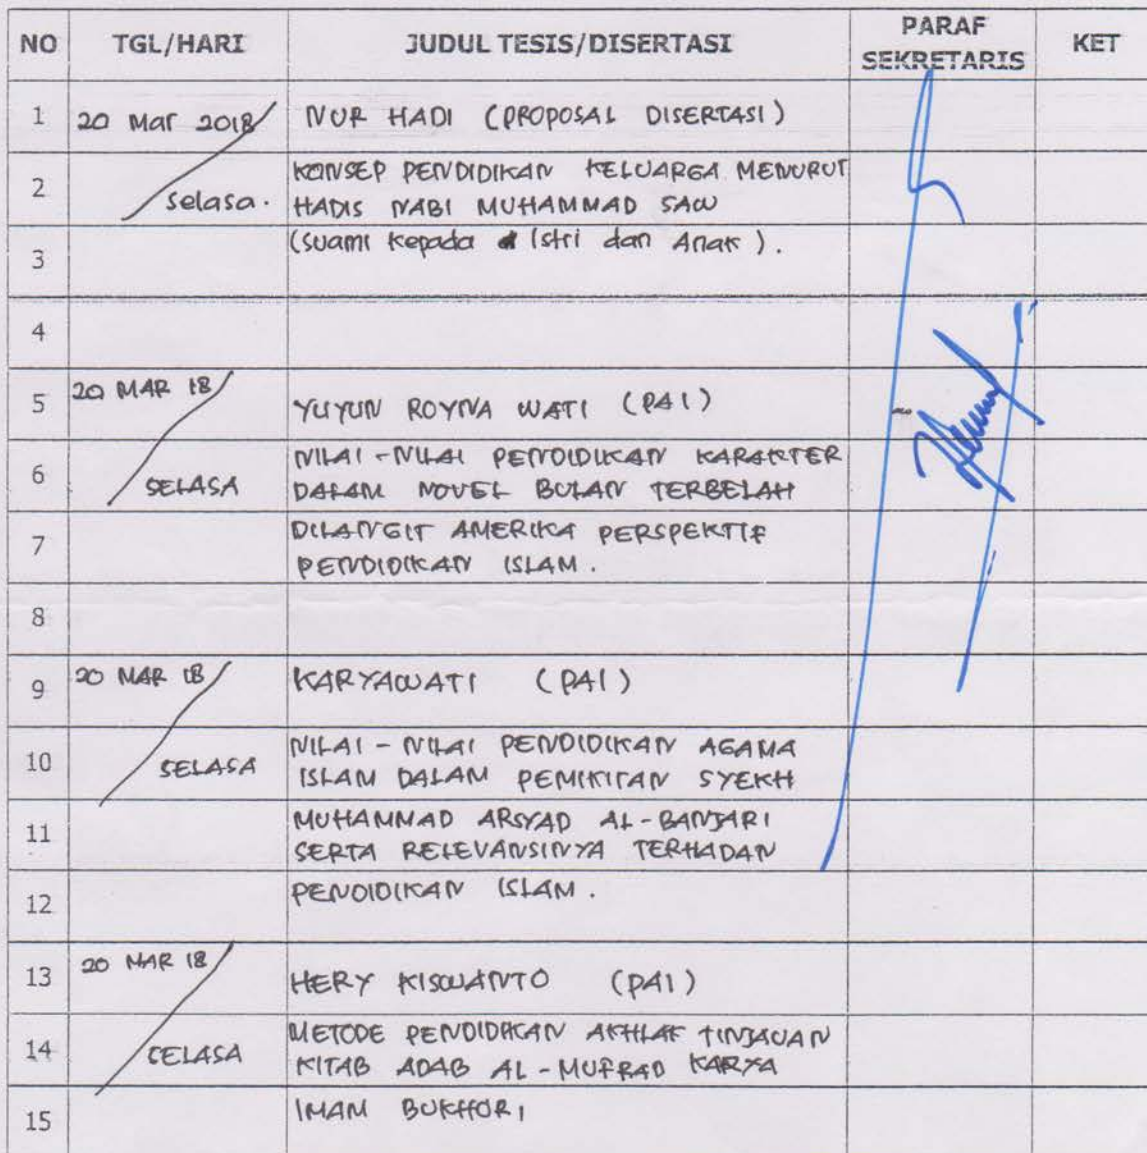 NO TGL/HARI JUDUL TESIS/DISERTASI PARAF SEKRETARIS KET
1 20 Mar 2018 NUR HADI (PROPOSAL DISERTASI)
2 selasa. KONSEP PENDIDIKAN KELUARGA MENURUT
HADIS NABI MUHAMMAD SAW
3 (suami kepada Istri dan Anak).
4
5 20 MAR 18 YUYUN ROYNA WATI (PAI)
6 SELASA NILAI-NILAI PENDIDIKAN KARAKTER
DALAM NOVEL BULAN TERBELAH
7 DILANGIT AMERIKA PERSPEKTIF
PENDIDIKAN ISLAM.
8
9 20 MAR 18 KARYAWATI (PAI)
10 SELASA NILAI-NILAI PENDIDIKAN AGAMA
ISLAM DALAM PEMIKIRAN SYEKH
11 MUHAMMAD ARSYAD AL-BANJARI
SERTA RELEVANSINYA TERHADAN
12 PENDIDIKAN ISLAM.
13 20 MAR 18 HERY KISWANTO (PAI)
14 SELASA METODE PENDIDIKAN AKHLAK TINJAUAN
KITAB ADAB AL-MUFRAD KARYA
15 IMAM BUKHORI